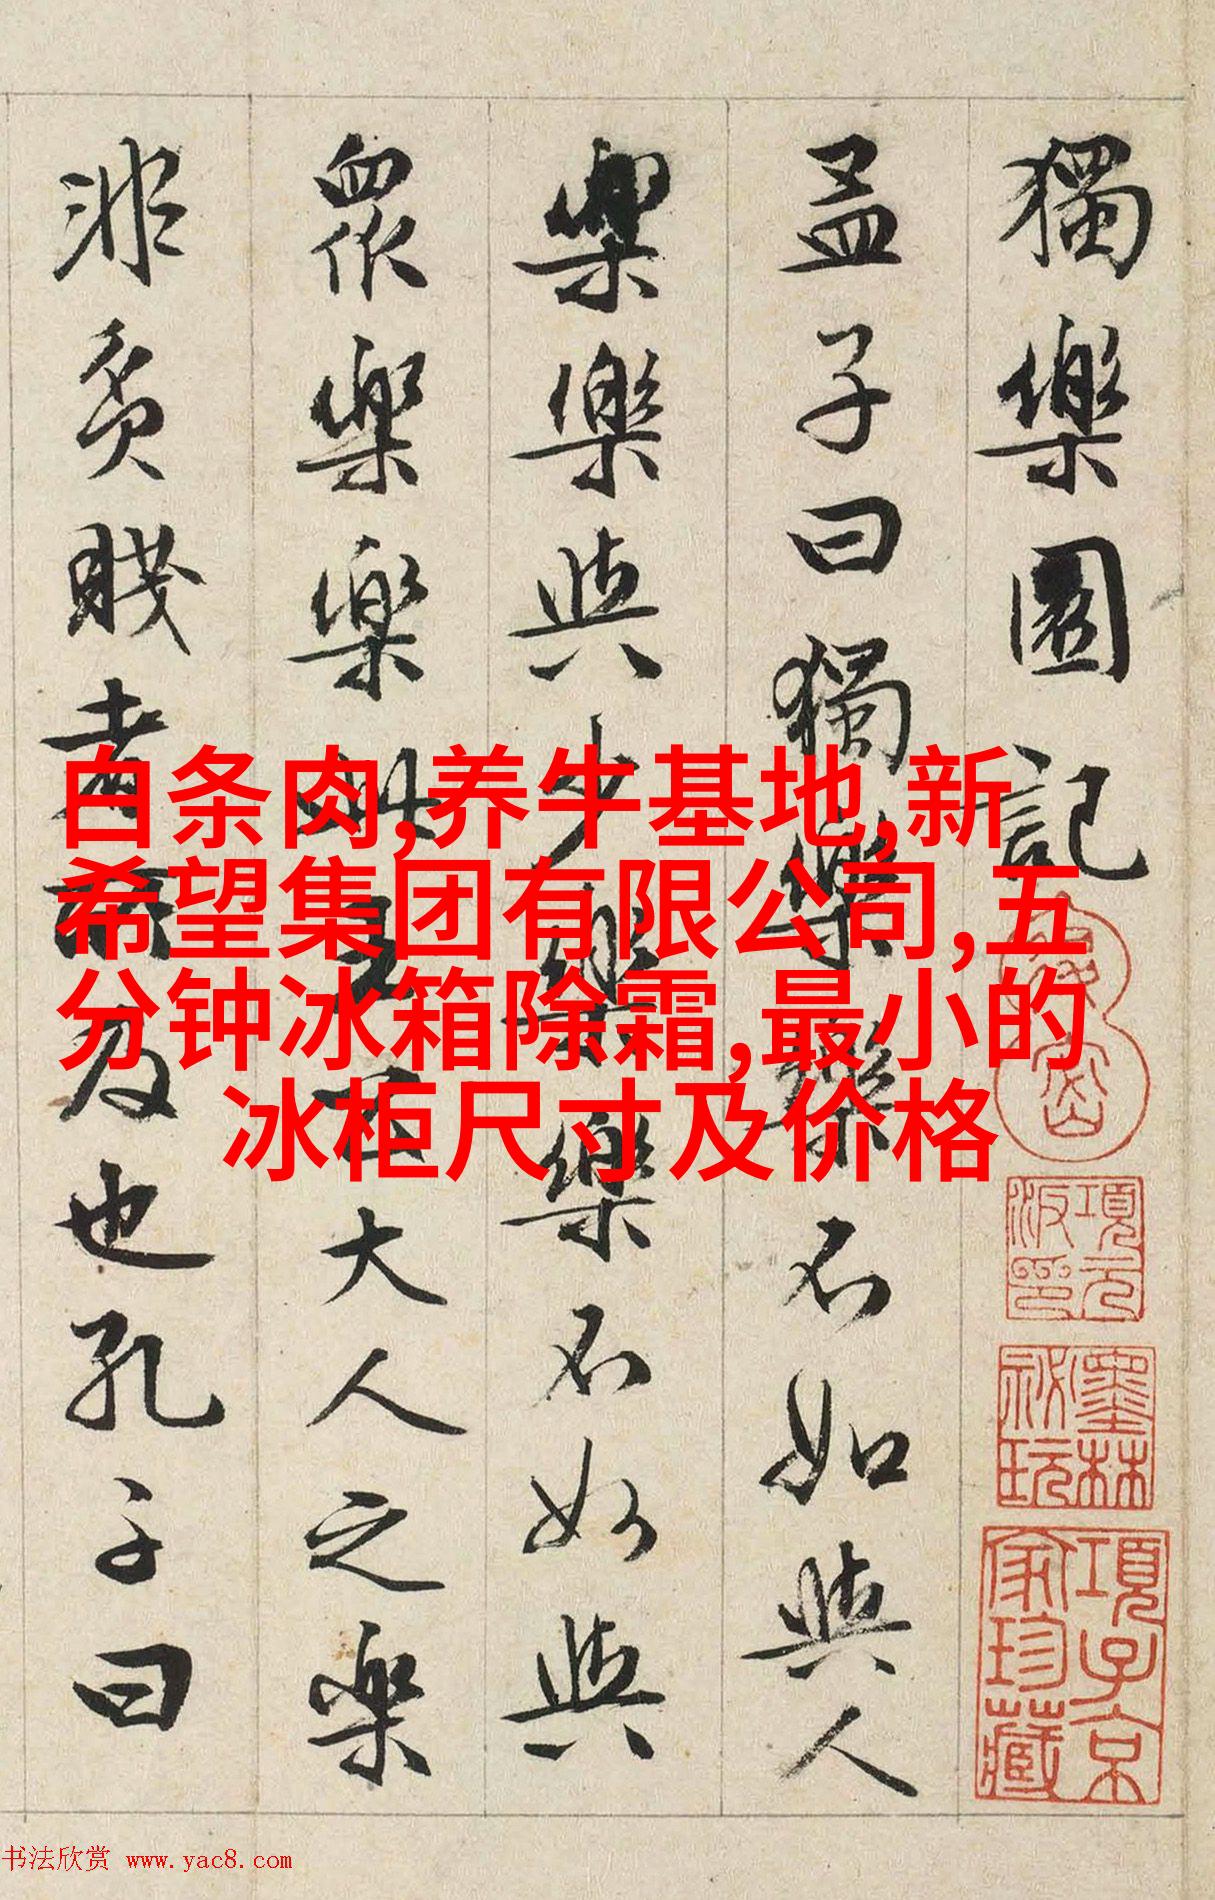 獨樂園記
孟子曰獨樂樂不如與人
樂樂與少樂樂不如與
眾樂樂此大人之樂
非貧賤者及也孔子曰
項元汴印
墨林祕玩
項子京家珍藏
白条肉,养牛基地,新
希望集团有限公司,五
分钟冰箱除霜,最小的
冰柜尺寸及价格
书法欣赏 www.yac8.com